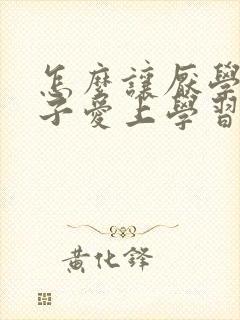 怎麼讓厭學
子愛上學習
黃化鋒